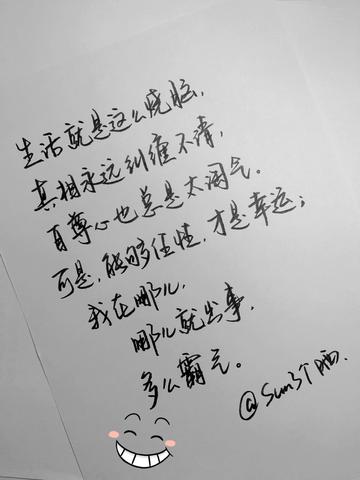 生活就是这么烧脑,
真相永远纠缠不清,
自尊心也总是太淘气。
可是,能够任性,才是幸运;
我在哪儿,
哪儿就出事,
多么霸气。
@Sun3个晒.